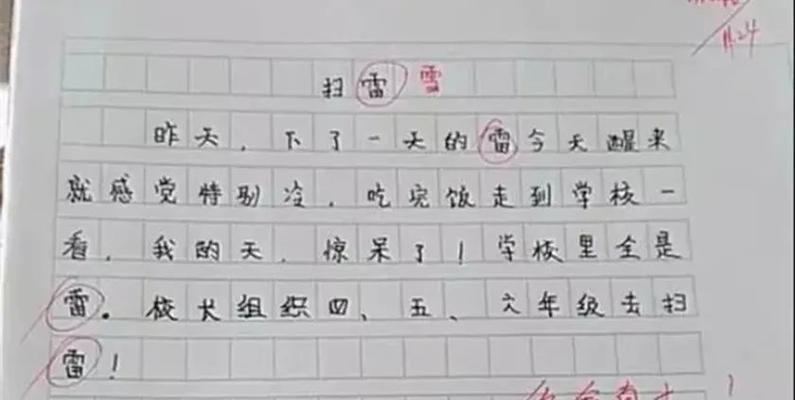 扫雷 雪
昨天，下了一天的雷今天醒来
就感觉特别冷，吃完饭走到学校一
看，我的天，惊呆了！学校里全是
雷。校长组织四、五、六年级去扫
雷！
11.24